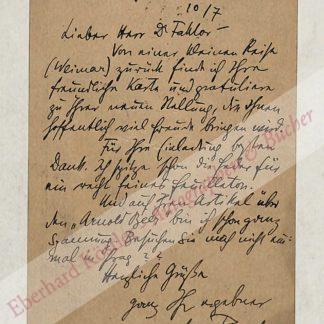 10/7
Lieber Herr Dr Faktor –
Von einer kleinen Reise
(Weimar) zurück finde ich Ihre
freundliche Karte und gratuliere
zu Ihrer neuen Stellung, die Ihnen
hoffentlich viel Freude bringen wird.
Für Ihre Einladung besten
Dank. Ich spitze schon die Feder für
ein recht feines Feuilleton.
Und auf Ihren Artikel über
den „Arnold Beer" bin ich schon ganz
Spannung. Besuchen Sie mich nicht ein-
mal in Prag??
Herzliche Grüße
ganz Ihr ergebener
Eberhard Köstler Autographen & Bücher